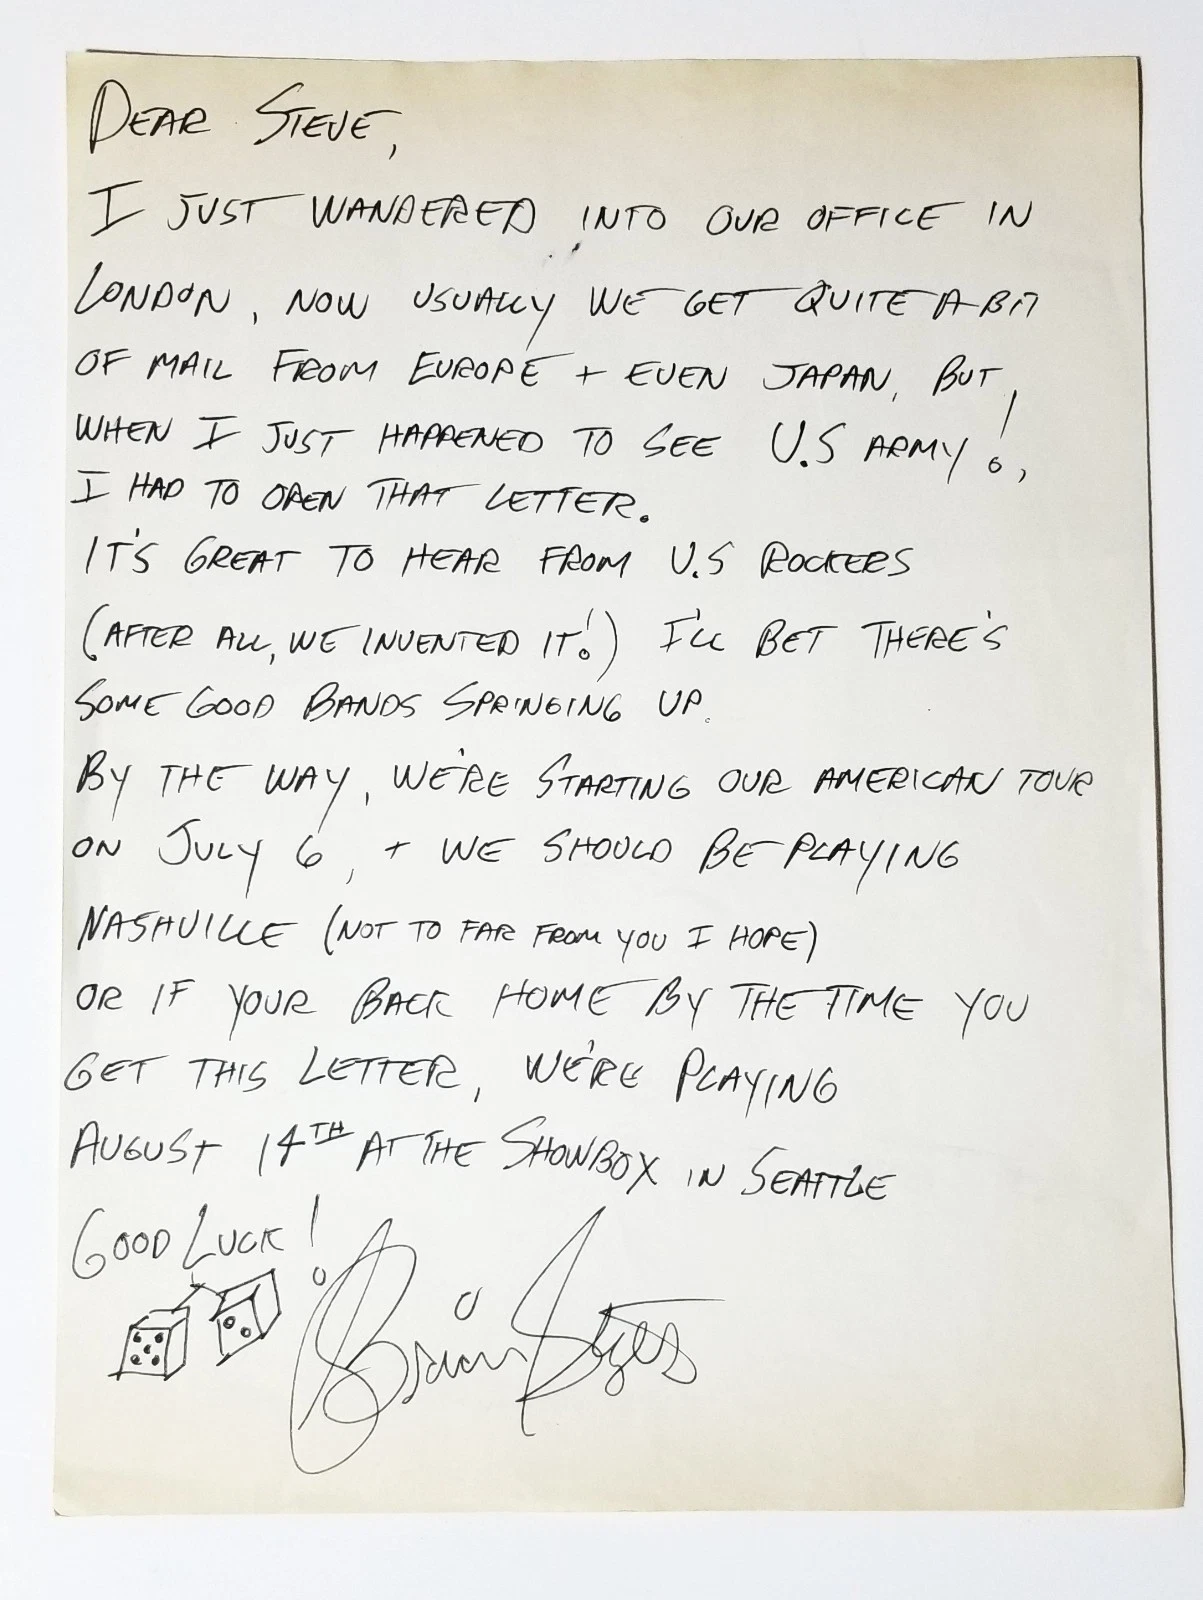 DEAR STEVE,
I JUST WANDERED INTO OUR OFFICE IN
LONDON, NOW USUALLY WE GET QUITE A BIT
OF MAIL FROM EUROPE + EVEN JAPAN, BUT
WHEN I JUST HAPPENED TO SEE U.S ARMY!,
I HAD TO OPEN THAT LETTER.
IT'S GREAT TO HEAR FROM U.S ROCKERS
(AFTER ALL, WE INVENTED IT!) I'LL BET THERE'S
SOME GOOD BANDS SPRINGING UP.
BY THE WAY, WE'RE STARTING OUR AMERICAN TOUR
ON JULY 6, + WE SHOULD BE PLAYING
NASHVILLE (NOT TO FAR FROM YOU I HOPE)
OR IF YOUR BACK HOME BY THE TIME YOU
GET THIS LETTER, WE'RE PLAYING
AUGUST 14TH AT THE SHOWBOX IN SEATTLE
GOOD LUCK!
Brian